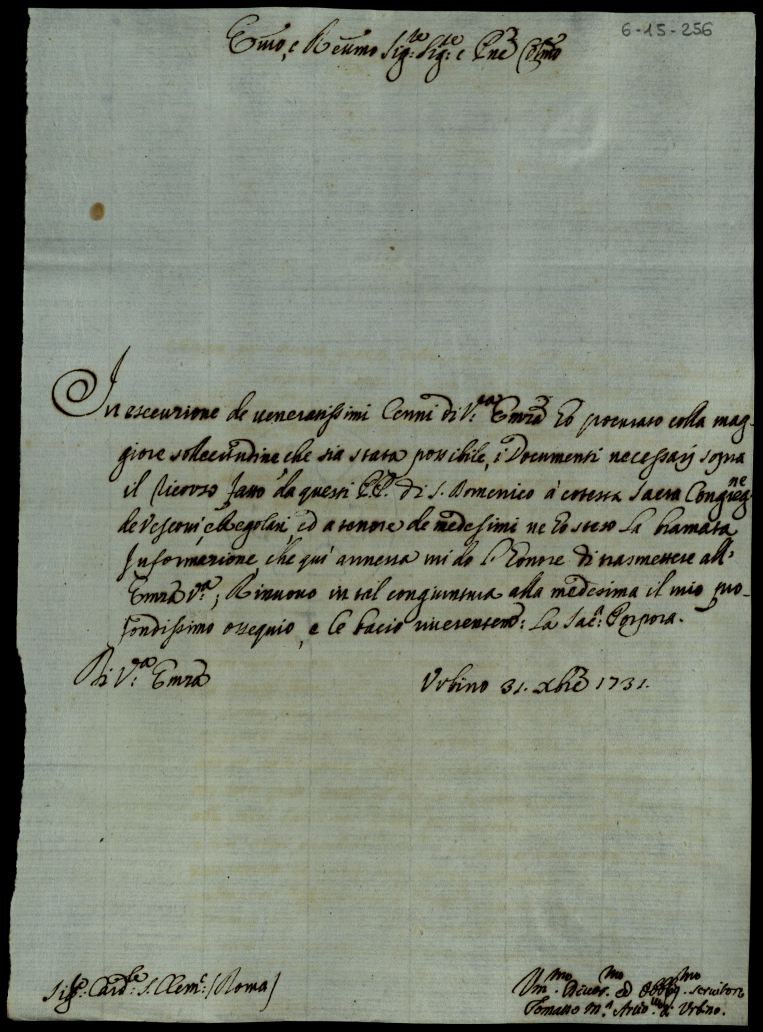 6-15-256
Emo, e Reumo Sig:re Sig:re e Pne Colmo
In esecuzione de veneratissimi Cenni di V:ra Emza ho procurato colla mag-
giore sollecitudine che sia stata possibile, i Documenti necessarj sopra
il Ricorso fatto da questi P.P. di S. Domenico à cotesta Sacra Congreg:ne
de Vescovi, e Regolari, ed a tenore de medesimi ne ho steso la bramata
Informazione, che qui annessa mi do l'honore di trasmettere all'
Emza V:ra; Rinuovo in tal congiuntura alla medesima il mio pro-
fondissimo ossequio, e le bacio riverentem: la Sac: Porpora.
Di V:ra Emza
Urbino 31. Xbre 1731.
Sig:r Card:le S. Clem:e (Roma)
Um:mo Divot:mo ed Obblig:mo Servitore
Tomaso M:a Arciv:o di Urbino.